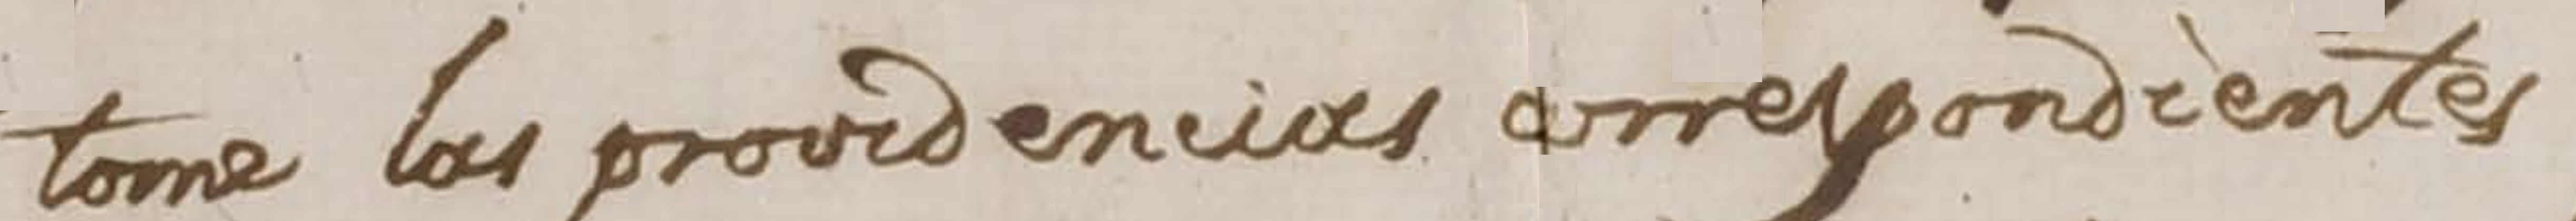 tome las providencias correspondientes